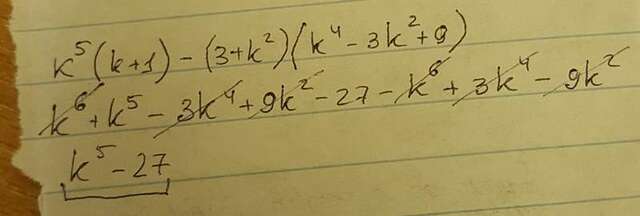 k⁵(k+1) - (3+k²)(k⁴ - 3k² + 9)
k⁶ + k⁵ - 3k⁴ + 9k² - 27 - k⁶ + 3k⁴ - 9k²
k⁵ - 27